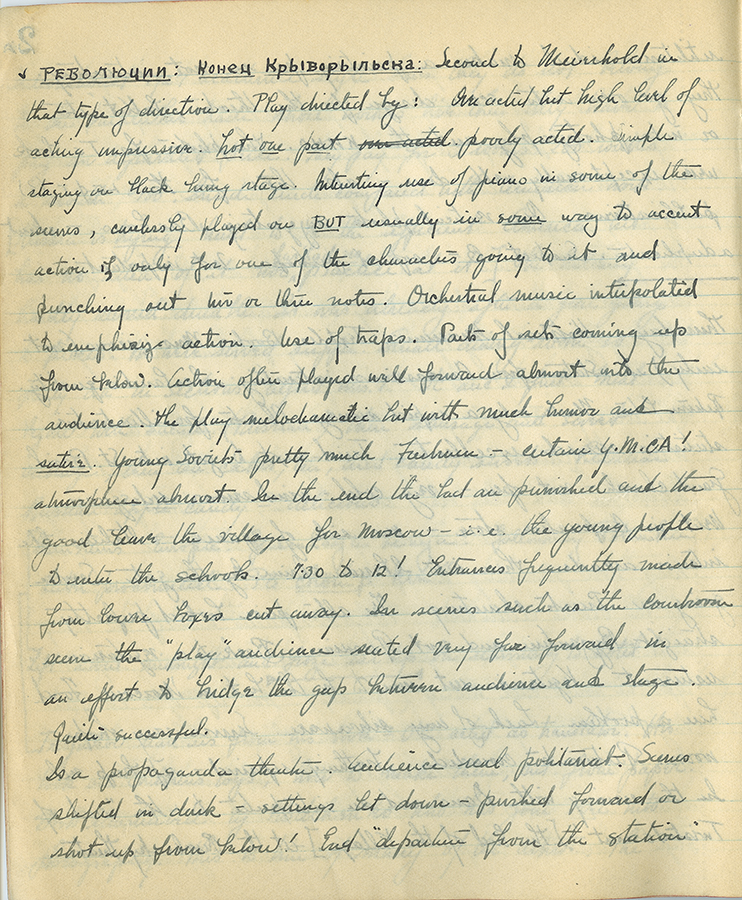 ✓ РЕВОЛЮЦИИ: Конец Крыворыльска: Second to Meierhold in
that type of direction. Play directed by: Over acted but high level of
acting impressive. Not one part over acted poorly acted. Simple
staging on black hung stage. Interesting use of piano in some of the
scenes, carelessly played on BUT usually in some way to accent
action if only for one of the characters going to it and
punching out two or three notes. Orchestral music interpolated
to emphasize action. Use of traps. Parts of sets coming up
from below. Action often played well forward almost into the
audience. The play melodramatic but with much humor and
satire. Young Soviets pretty much Freshmen – certain Y.M.CA!
atmosphere almost. In the end the bad are punished and the
good leave the village for Moscow – i.e. the young people
to enter the schools. 7:30 to 12! Entrances frequently made
from lower boxes cut away. In scenes such as the courtroom
scene the "play" audience seated very far forward in
an effort to bridge the gap between audience and stage.
Quite successful.
Is a propaganda theatre. Audience real proletariat. Scenes
shifted in dark – settings let down – pushed forward or
shot up from below! End "departure from the station"